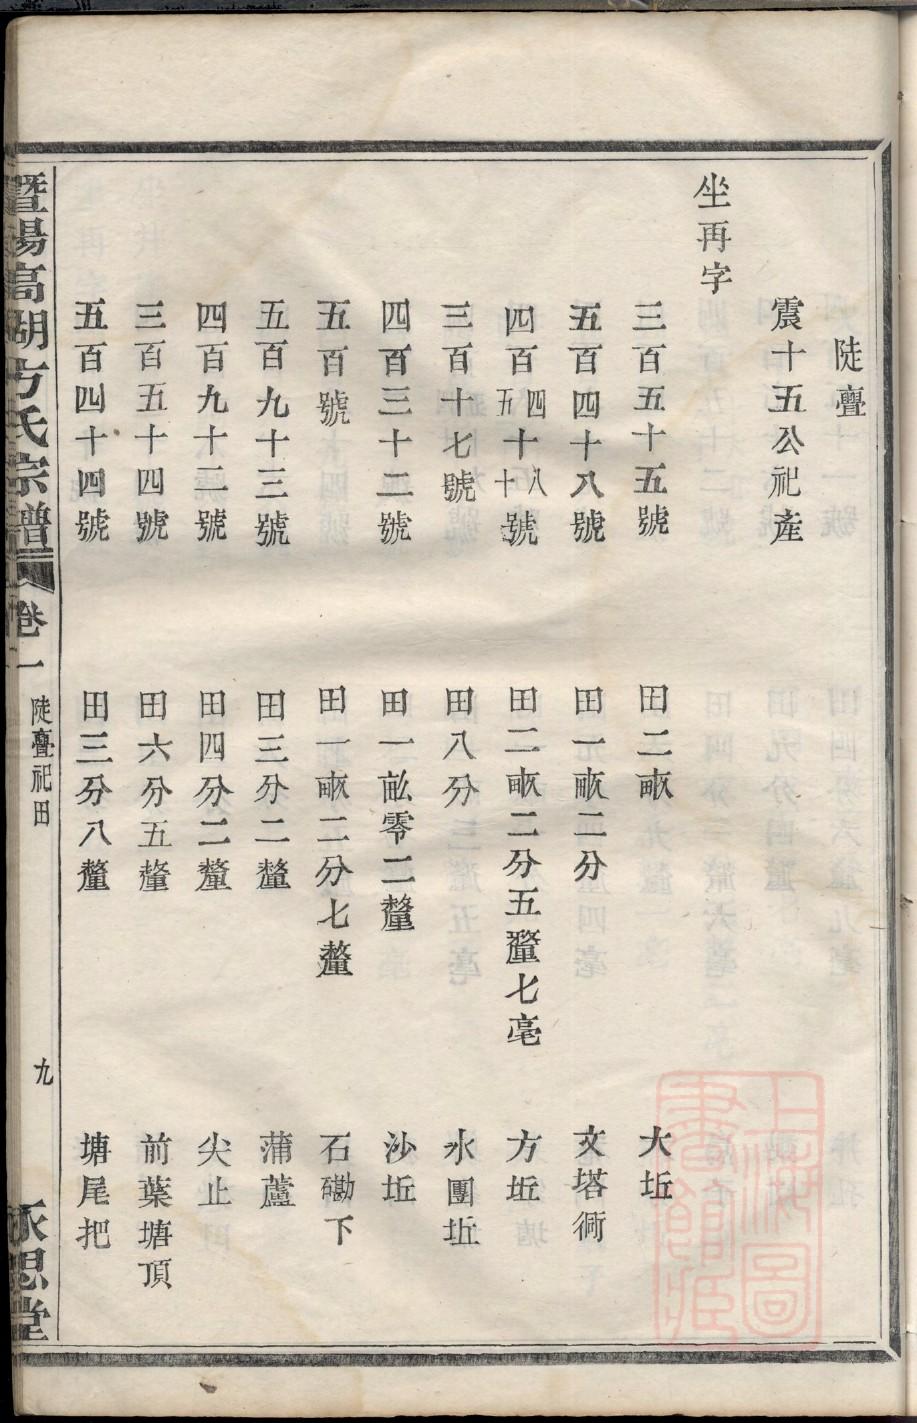 陡亹
震十五公祀產
坐再字
三百五十五號 田二畝 大坵
五百四十八號 田一畝二分 文塔衕
四百四十八五十號 田二畝二分五釐七毫 方坵
三百十七號 田八分 水團坵
四百三十二號 田一畝零二釐 沙坵
五百號 田一畝二分七釐 石磡下
五百九十三號 田三分二釐 蒲蘆
四百九十二號 田四分二釐 尖止
三百五十四號 田六分五釐 前葉塘頂
五百四十四號 田三分八釐 塘尾把
暨陽高湖方氏宗譜 卷一 陡亹祀田 九 永思堂
上海圖書館藏